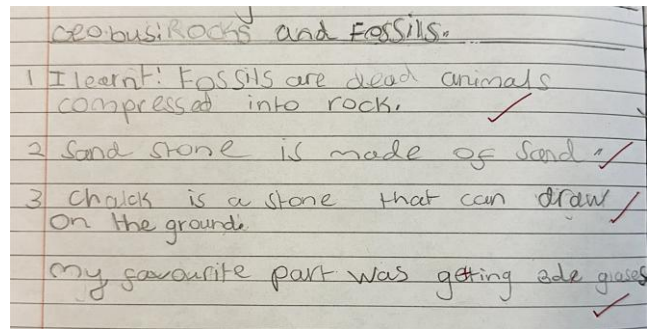 Geobus: Rocks and Fossils.
1 I learnt! Fossils are dead animals
compressed into rock.
2 Sand stone is made of Sand.
3 Chalck is a stone that can draw
on the ground.
my favourite part was getting 3de glases